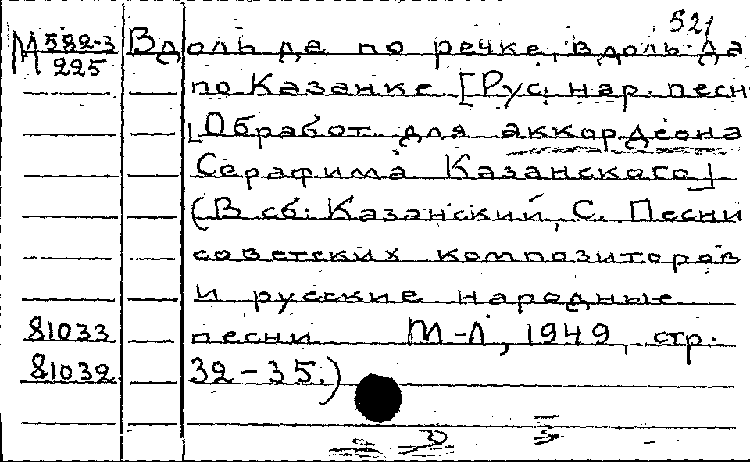 521
М 582-3/225 Вдоль да по речке, вдоль да
по Казанке [Рус. нар. песн
Обработ для аккордеона
Серафима Казанского]
(В сб: Казанский, С. Песни
советских композиторов
и русские народные
81033 песни М-Л, 1949, стр.
81032 32-35.)